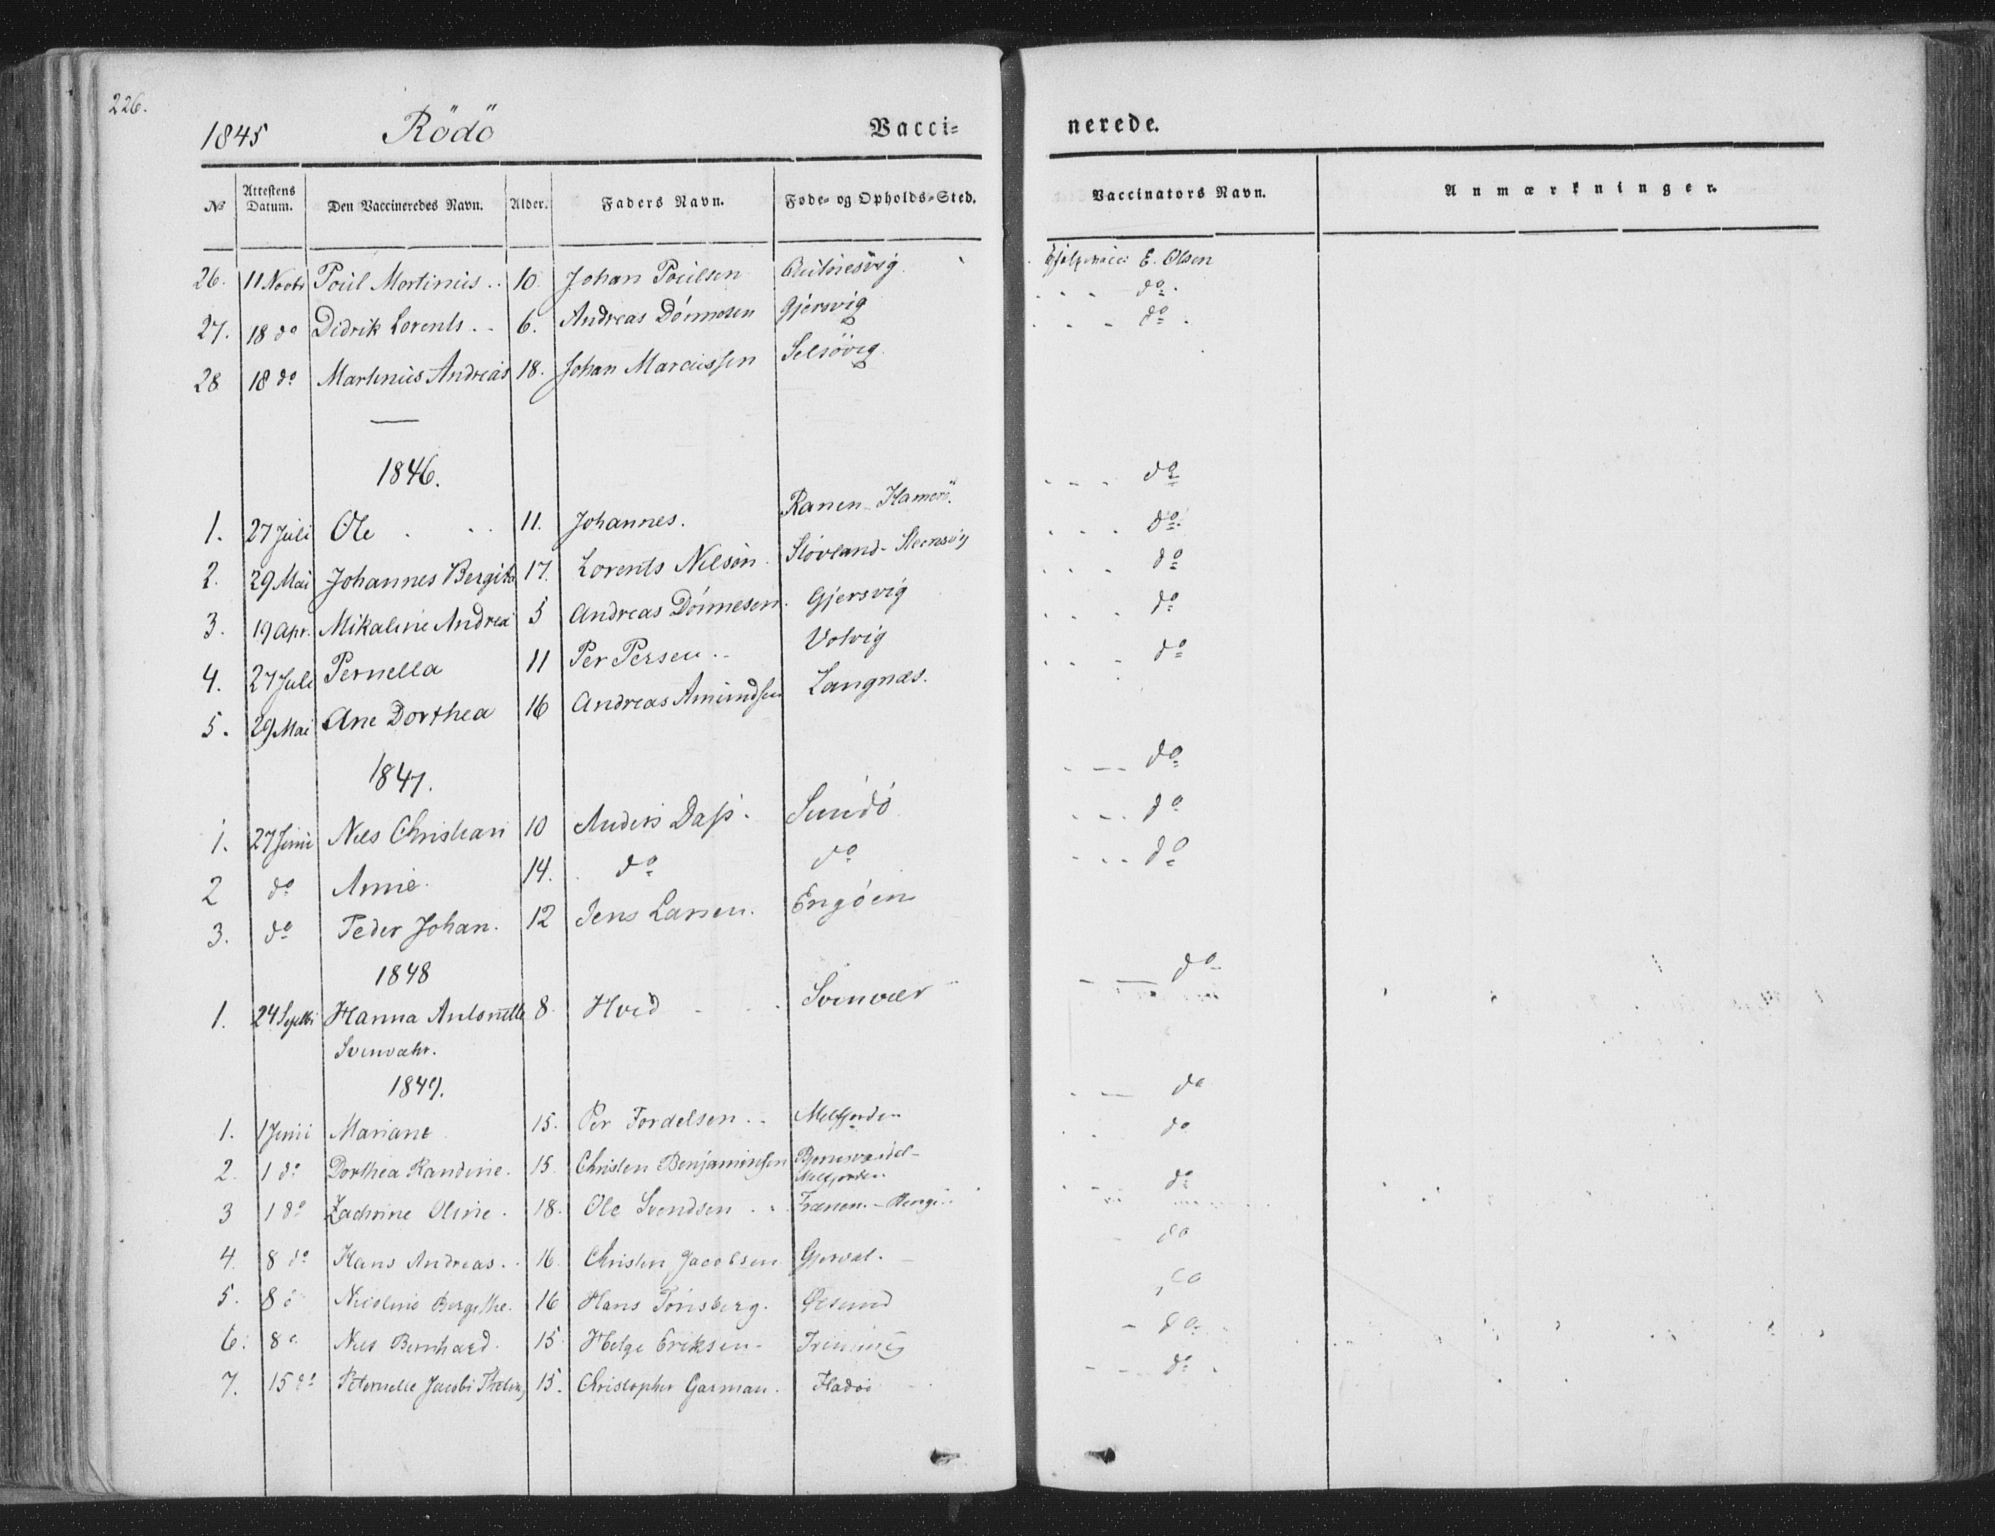 226.
1845 Rödö Vacci= nerede.
No Attestens Datum. Den Vaccineredes Navn. Alder. Faders Navn. Føde- og Opholds-Sted. Vaccinators Navn. Anmærkninger.
26. 11 Novbr Poul Mortinus .. 10. Johan Poulsen E. Olsen
27. 18 do Didrik Lorents .. 6. Andreas Dönnesen Gjersvig do
28 18 do Martinus Andreas 18. Johan Marcussen Selsövig do
1846.
1. 27 Juli Ole 11. Johannes. Ranen-Hamerö. do
2. 29 Mai Johannes Bergith 17. Lorents Nilsön Stövland- do
3. 19 Apr. Mikaline Andrea 5 Andreas Dönnesen. Gjersvig do
4. 27 Juli Pernella 11 Per Persen .. Volvig do
5. 29 Mai Ane Dorthea 16 Andreas Amundsen Langnæs. do
1847.
1. 27 Juni Nils Christian 10 Anders Dass. Sundö do
2 do Anne. 14. do do do
3. do Peder Johan. 12 Jens Larsen. Engöen do
1848
1. 24 Septbr Hanna Antonette 8. Hvid Svinvær do
Svinvæhr.
1849.
1. 1 Juni Mariane 15. Per Tordelsen .. Melfjorden do
2. 1 do Dorthea Randine. 15. Christen Benjaminsen do
Melfjorden
3 1 do Zachrine Oline. 18. Ole Svendsen do
4. 8 do Hans Andreas. 16. Christen Jacobsen Gjerval. do
5. 8 Nicoline Bergithe. 16 Hans Tönsberg. Öesund do
6. 8 Nils Bernhard. 15. Helge Eriksen. do
7. 15 do Peternelle Jacobi 15. Christopher Garman. Fladöi do